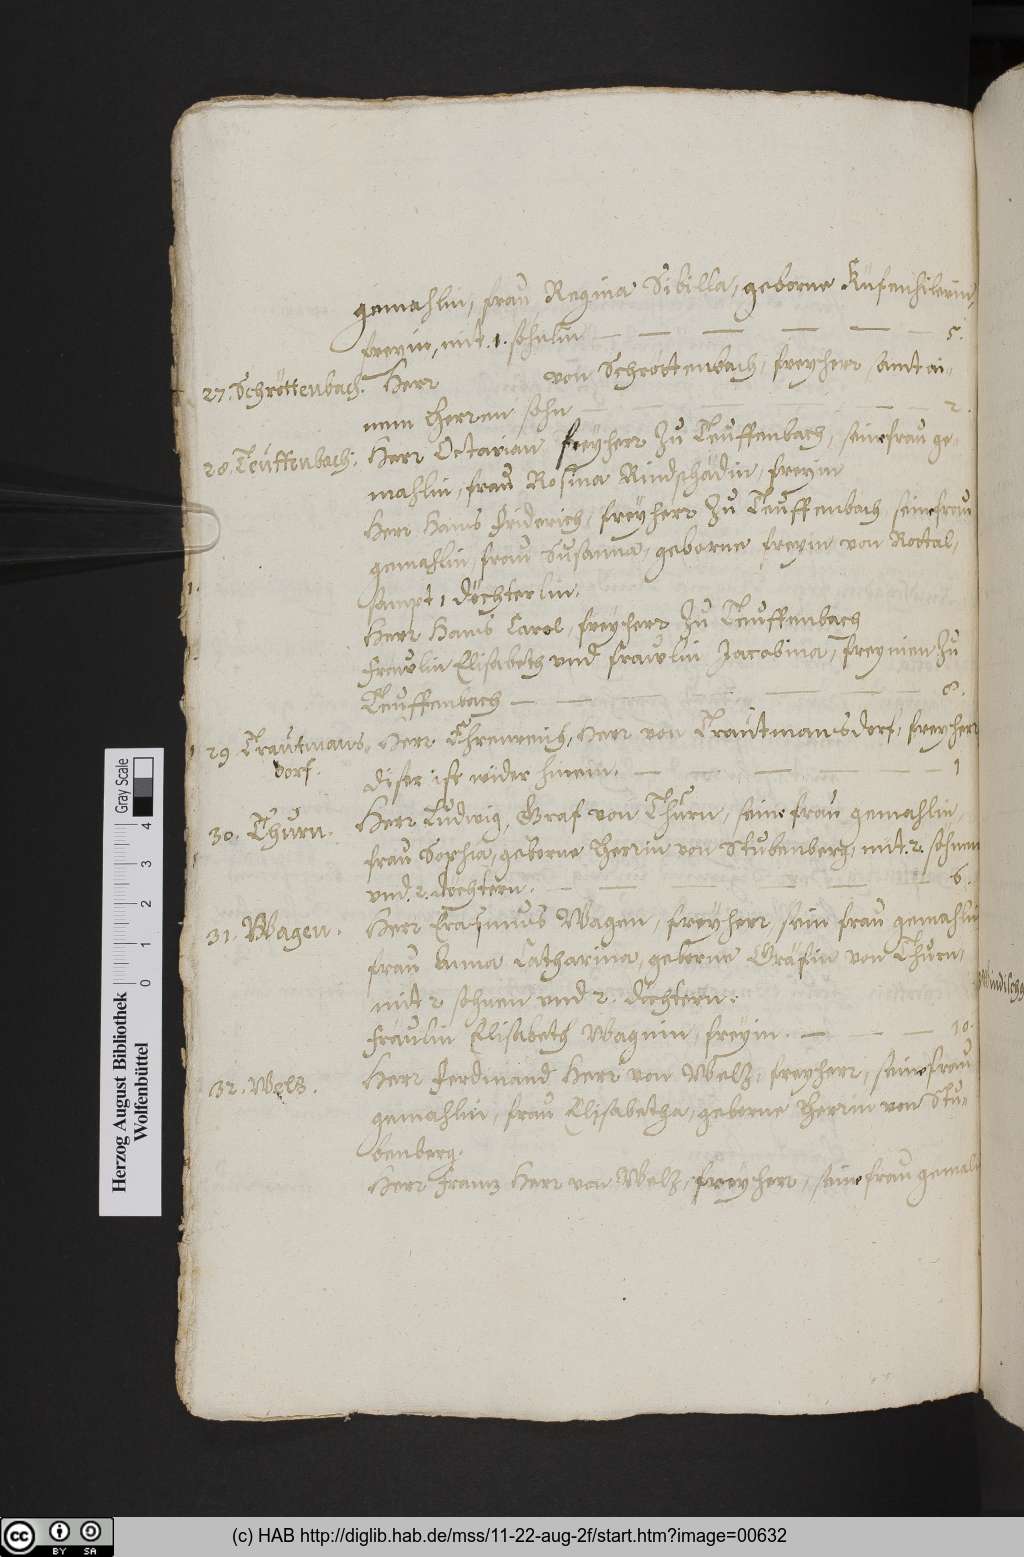 gemahlin, frau Regina Sibilla, geborne Küfenhilerin,
freyin, mit .1. söhnlin — — — — — — 5.
27. Schröttenbach. Herr von Schrottenbach, freyherr, samt ai-
nem Herren sohn — — — — — 2.
28. Teuffenbach: Herr Octavian freyherr zu Teuffenbach, seine frau ge-
mahlin, frau Rosina Rindschadin, freyin
Herr Hans Friderich, freyherr zu Teuffenbach seine frau
gemahlin, frau Susanna, geborne freyin von Rottal,
sampt 1 döchterlin.
1.
Herr Hans Carol, freyherr zu Teuffenbach
Frawlin Elisabeth und frawlin Jacobina, freyinen zu
Teuffenbach — — — — — 8.
29. Trautmans- Herr Ehrenreich, Herr von Trautmansdorf, freyherr
dorf.
diser ist wider hinein. — — — — — 1
30. Thurn. Herr Ludwig, Graf von Thurn, seine frau gemahlin,
frau Sophia, geborne Herrin von Stubenberg, mit .2. söhnen
und .2. döchtern. — — — — — 6.
31. Wagen. Herr Erasmus Wagen, freyherr, sein frau gemahlin
frau Anna Catharina, geborne Gräfin von Thurn,
mit 2 söhnen und 2. döchtern.
Fräulin Elisabeth Wagnin, freyin. — — — 10.
32. Welz. Herr Ferdinand Herr von Welz, freyherr, seine frau
gemahlin, frau Elisabetha, geborne Herrin von Stu-
benberg.
Herr Franz Herr von Welz, freyherr, seine frau gemahl
Herzog August Bibliothek
Wolfenbüttel
Gray Scale
0 1 2 3 4
cc BY SA
(c) HAB http://diglib.hab.de/mss/11-22-aug-2f/start.htm?image=00632